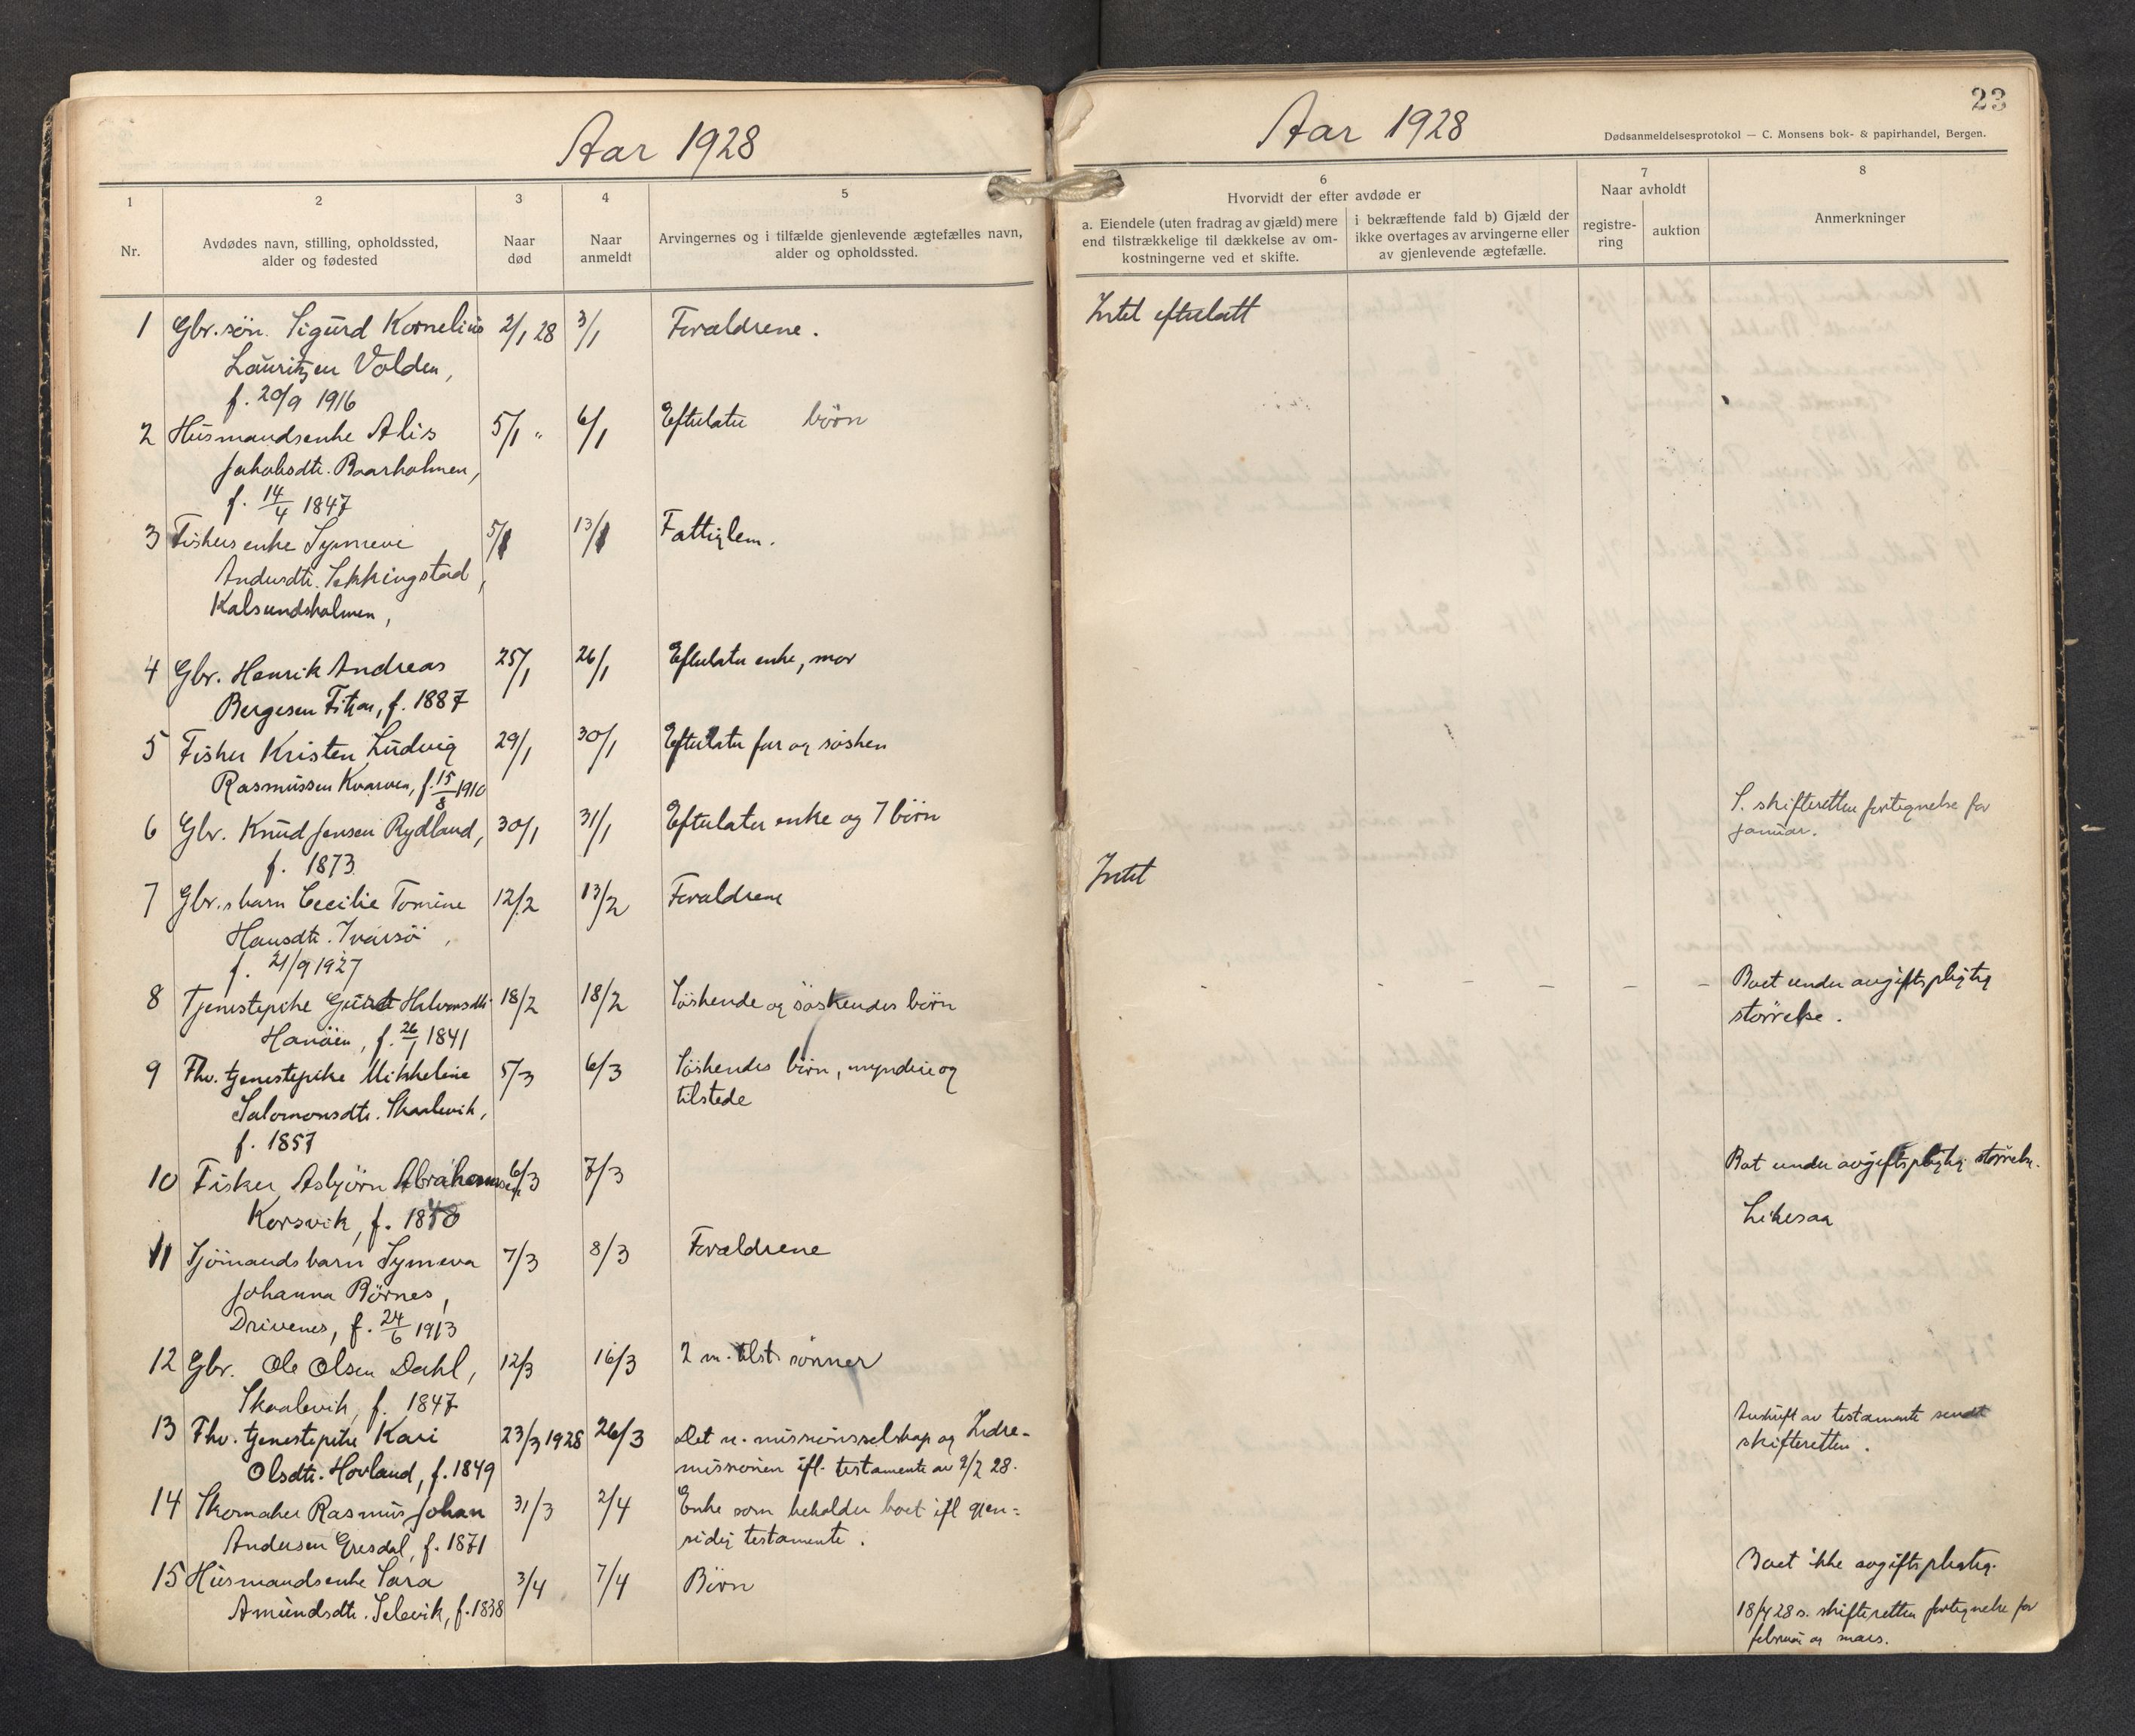 Aar 1928
1
2
3
4
5
Nr.
Avdødes navn, stilling, opholdssted,
alder og fødested
Naar
død
Naar
anmeldt
Arvingernes og i tilfælde gjenlevende ægtefælles navn,
alder og opholdssted.
1 Gbr. søn. Sigurd Kornelius 2/1 28 3/1 Forældrene.
Lauritzen Volden,
f. 20/9 1916
2 Husmandsenke Alis 5/1 " 6/1 Efterlater børn
Jakobsdtr. Baarholmen,
f. 14/4 1847
3 Fiskers enke Synneve 5/1 13/1 Fattiglem.
Andersdtr. Sekkingstad,
Kalsundsholmen,
4 Gbr. Henrik Andreas 25/1 26/1 Efterlater enke, mor
Bergesen Fitjar, f. 1887
5 Fisker Kristen Ludvig 29/1 30/1 Efterlater far og søsken
Rasmussen Kvarven, f. 15/8 1910
6 Gbr. Knud Jensen Rydland, 30/1 31/1 Efterlater enke og 7 børn
f. 1873
7 Gbr.s barn Cecilie Tomine 12/2 13/2 Forældrene
Hansdtr. Ivarsö,
f. 21/9 1927
8 Tjenestepike Halvorsdtr. 18/2 18/2 Søskende og søskendes børn
Hanöen, f. 26/1 1841
9 Fhv. tjenestepike Mikkeline 5/3 6/3 Søskendes børn, myndige og
Salomonsdtr. Skaalevik, tilstede
f. 1857
10 Fisker Asbjörn Abrahamsen 6/3 7/3
Korsvik, f. 1848
11 Sjömands barn Synneva 7/3 8/3 Forældrene
Johanna Börnes,
Drivenes, f. 24/6 1913
12 Gbr. Ole Olsen Dahl, 12/3 16/3 2 m. tilst. sønner
Skaalevik, f. 1847
13 Fhv. tjenestepike Kari 23/3 1928 26/3 Det n. missionsselskap og Indre-
Olsdtr. Hovland, f. 1849 missionen ifl. testamente av 9/2 28.
14 Skomaker Rasmus Johan 31/3 2/4 Enke som beholder boet ifl gjen=
Andersen f. 1871 sidig testamente.
15 Husmandsenke Sara 3/4 7/4 Börn
Amundsdtr. Selevik, f. 1838
23
Aar 1928
Dødsanmeldelsesprotokol — C. Monsens bok- & papirhandel, Bergen.
6
Hvorvidt der efter avdøde er
a. Eiendele (uten fradrag av gjæld) mere
end tilstrækkelige til dækkelse av om-
kostningerne ved et skifte.
i bekræftende fald b) Gjæld der
ikke overtages av arvingerne eller
av gjenlevende ægtefælle.
7
Naar avholdt
registre-
ring
auktion
8
Anmerkninger
Intet efterlatt
S. skifteretten fortegnelse for
januar.
Intet
Boet under avgiftspligtig
størrelse.
Bot under avgiftspligtig størrelse.
Likesaa
Avskrift av testamente sendt
skifteretten.
Boet ikke avgiftspligtig.
18/4 28 s. skifteretten fortegnelse for
februar og mars.